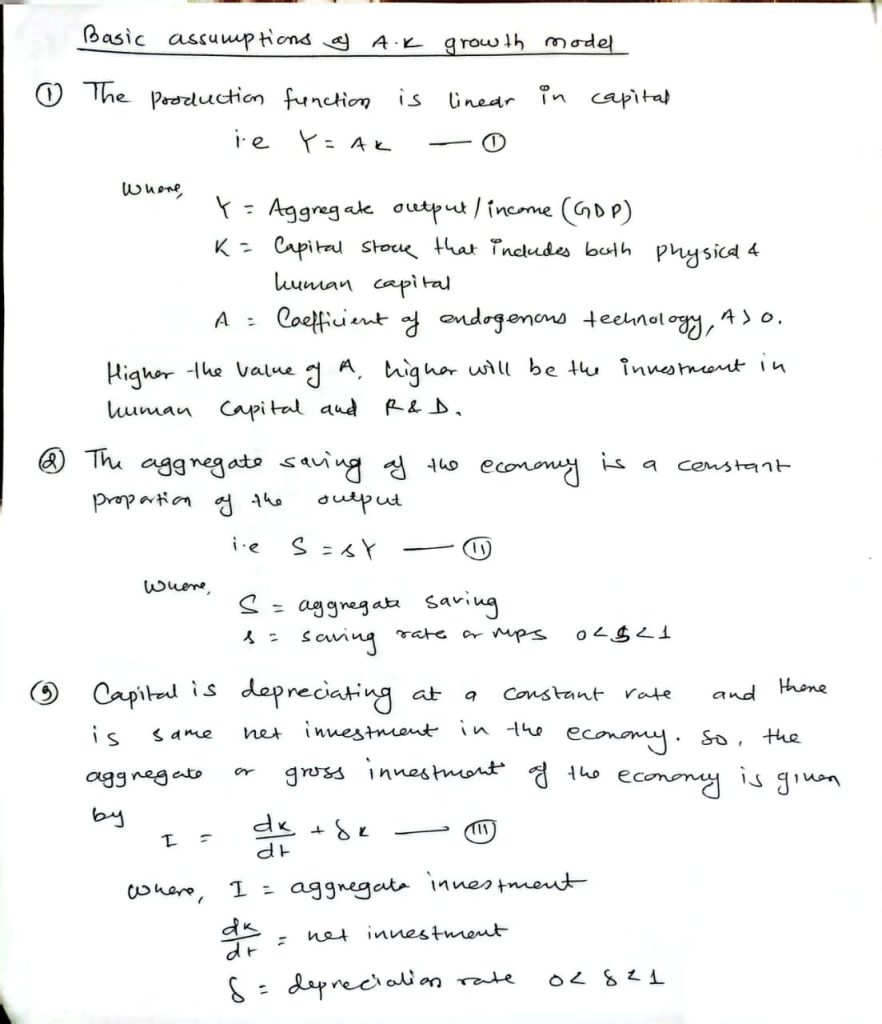 Basic assumptions of A.K growth model
① The production function is linear in capital
i.e Y = AK — ①
Where,
Y = Aggregate output / income (GDP)
K = Capital stock that includes both physical &
human capital
A = Coefficient of endogenous technology, A > 0.
Higher the value of A, higher will be the investment in
human capital and R & D.
② The aggregate saving of the economy is a constant
proportion of the output
i.e S = sY — ⑪
Where,
S = aggregate saving
s = saving rate or mps 0 < s < 1
③ Capital is depreciating at a constant rate and there
is same net investment in the economy. So, the
aggregate or gross investment of the economy is given
by
I = dK/dt + δK — (III)
Where, I = aggregate investment
dK/dt = net investment
δ = depreciation rate 0 < δ < 1